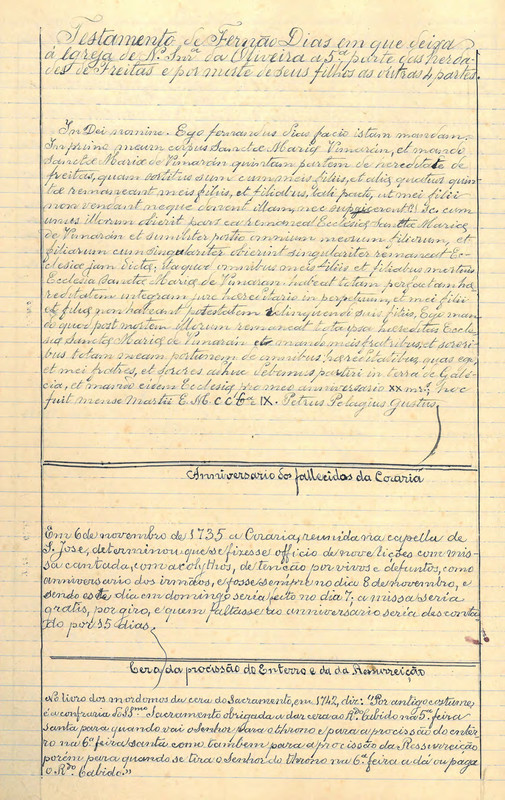 Testamento de Fernão Dias em que deixa
á Igreja de N.ª Snr.ª da Oliveira a 5.ª parte das herda-
des de Freitas e por morte de seus filhos as outras 4 partes.
In Dei nomine. Ego fernandus Dias facio istam mandam.
In primo meum corpus Sanctæ Mariæ Vimarán, et mando
Sanctæ Mariæ de Vimarán quintam partem de hereditate de
freitas, quam sortitus sum cum meis filiis, et aliæ quatuor quin-
tæ remaneant meis filiis, et filiabus, tali pacto, ut mei filii
non vendant neque donent illam, nec Sed cum
unus illorum obierit pars ea remaneat Ecclesiæ Sanctæ Mariæ
de Vimarán et similiter portio omnium meorum filiorum, et
filiarum cum singulariter obierint singulariter remaneat Ec-
clesiæ jam dictæ, itaque omnibus meis filiis et filiabus mortuis
Ecclesia Sanctæ Mariæ de Vimaran habeat totam prædictam hæ-
reditatem integram jure hereditario in perpetuum, et mei filii
et filiæ non habeant potestatem relinquendi suis filiis. Ego man-
do quod post mortem illorum remaneat tota ipsa hereditas Eccle-
siæ Sanctæ Mariæ de Vimarán et mando meis fratribus, et sorori-
bus totam meam portionem de omnibus hæreditatibus, quas ego,
et mei fratres, et sorores adhuc debemus partiri in terra de Galé-
cia, et mando eidem Ecclesiæ pro meo anniversario XX mr.s; hoc
fuit mense Martii E. M. CC IX. Petrus Pelagius Gustus.
Anniversario dos fallecidos da Coraria
Em 6 de novembro de 1735 a Coraria, reunida na capella de
S. José, determinou que se fizesse officio de nove lições com mis-
sa cantada, com acolythos, de tenção por vivos e defuntos, como
anniversario dos irmãos, e fosse sempre no dia 8 de novembro, e
sendo este dia em domingo seria feito no dia 7; a missa seria
gratis, por giro, e quem faltasse ao anniversario seria desconta-
do por 15 dias.
Cera da procissão do Enterro e da da Resurreição
No livro dos mordomos da cera do Sacramento, em 1742, diz: "Por antigo costume
é a confraria do SS.mo Sacramento obrigada a dar cera ao R.do Cabido na 5.ª feira
santa para quando vai o Senhor para o throno e para a procissão do enter-
ro na 6.ª feira santa como tambem para a procissão da Ressurreição
porém para quando se tira o Senhor do throno na 6.ª feira a dá ou paga
o R.do Cabido."